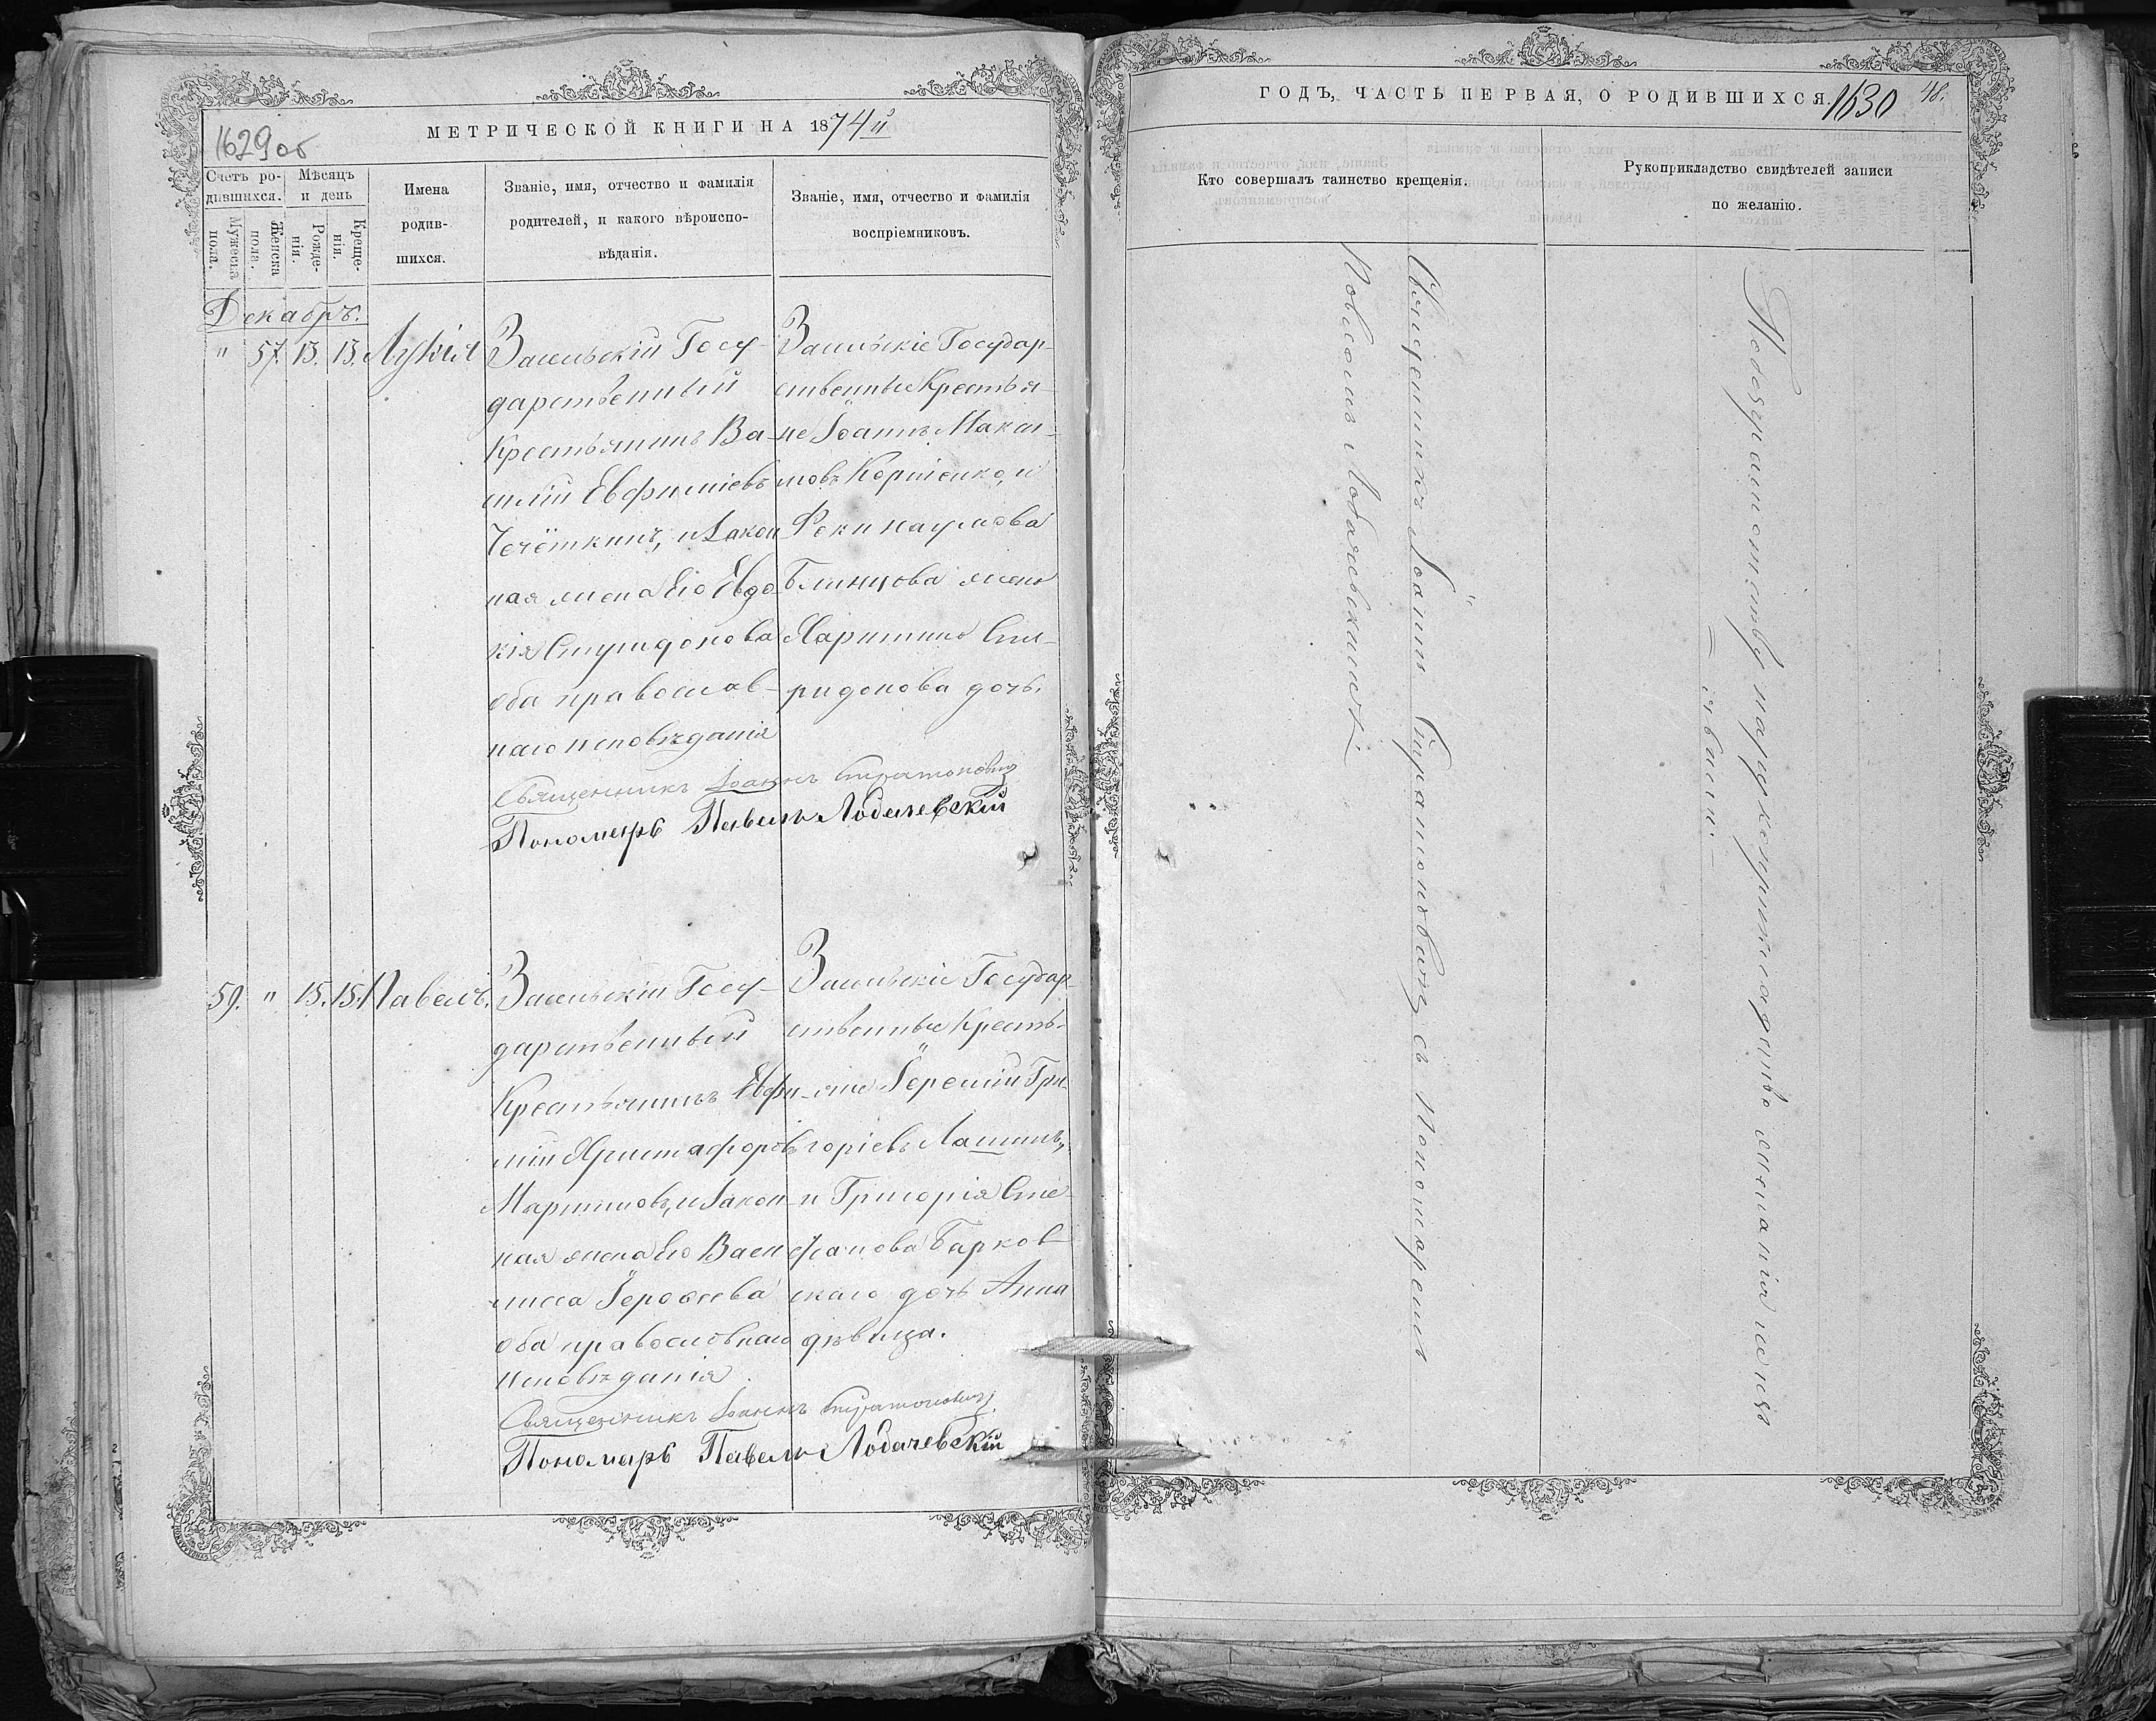 1629об
МЕТРИЧЕСКОЙ КНИГИ НА 1874й
Счетъ ро-
дившихся.
Мѣсяцъ
и день
Мужеска
пола.
Женска
пола.
Рожде-
нія.
Креще-
нія.
Имена
родив-
шихся.
Званіе, имя, отчество и фамилія
родителей, и какого вѣроиспо-
вѣданія.
Званіе, имя, отчество и фамилія
воспріемниковъ.
Декабрь.
" 57. 13. 13. Лукія
Засельскій Госу-
дарственный
Крестьянинъ Ва-
силій Евфиміевъ
Чечёткинъ, и закон
ная жена его Евдо
кія Спиридонова
оба православ-
наго исповѣданія
Засельскіе Государ-
ственные Крестья-
не Іоаннъ Макси-
мовъ Корніенко, и
Феки Наумова
Блинцова жена
Харитина Спи-
ридонова дочь.
Священникъ Іоаннъ Стратоновичъ
Пономарь Павелъ Лобачевскій
59. " 15. 15. Павелъ.
Засельскій Госу-
дарственный
Крестьянинъ Евфи-
мій Христофоровъ
Мартиновъ, и закон-
ная жена его Васи
лисса Іероѳеева
оба православнаго
исповѣданія
Засельскіе Государ-
ственные Кресть-
яне Іеремій Гри-
горіевъ Лашинъ,
и Григорія Сте-
фанова Барков-
скаго дочь Анна
дѣвица.
Священникъ Іоаннъ Стратоновичъ
Пономарь Павелъ Лобачевскій
ГОДЪ, ЧАСТЬ ПЕРВАЯ, О РОДИВШИХСЯ.
1630
48.
Кто совершалъ таинство крещенія.
Рукоприкладство свидѣтелей записи
по желанію.
Священникъ Іоаннъ Стратоновичъ съ Пономаремъ
Павломъ Лобачевскимъ.
По безграмотству